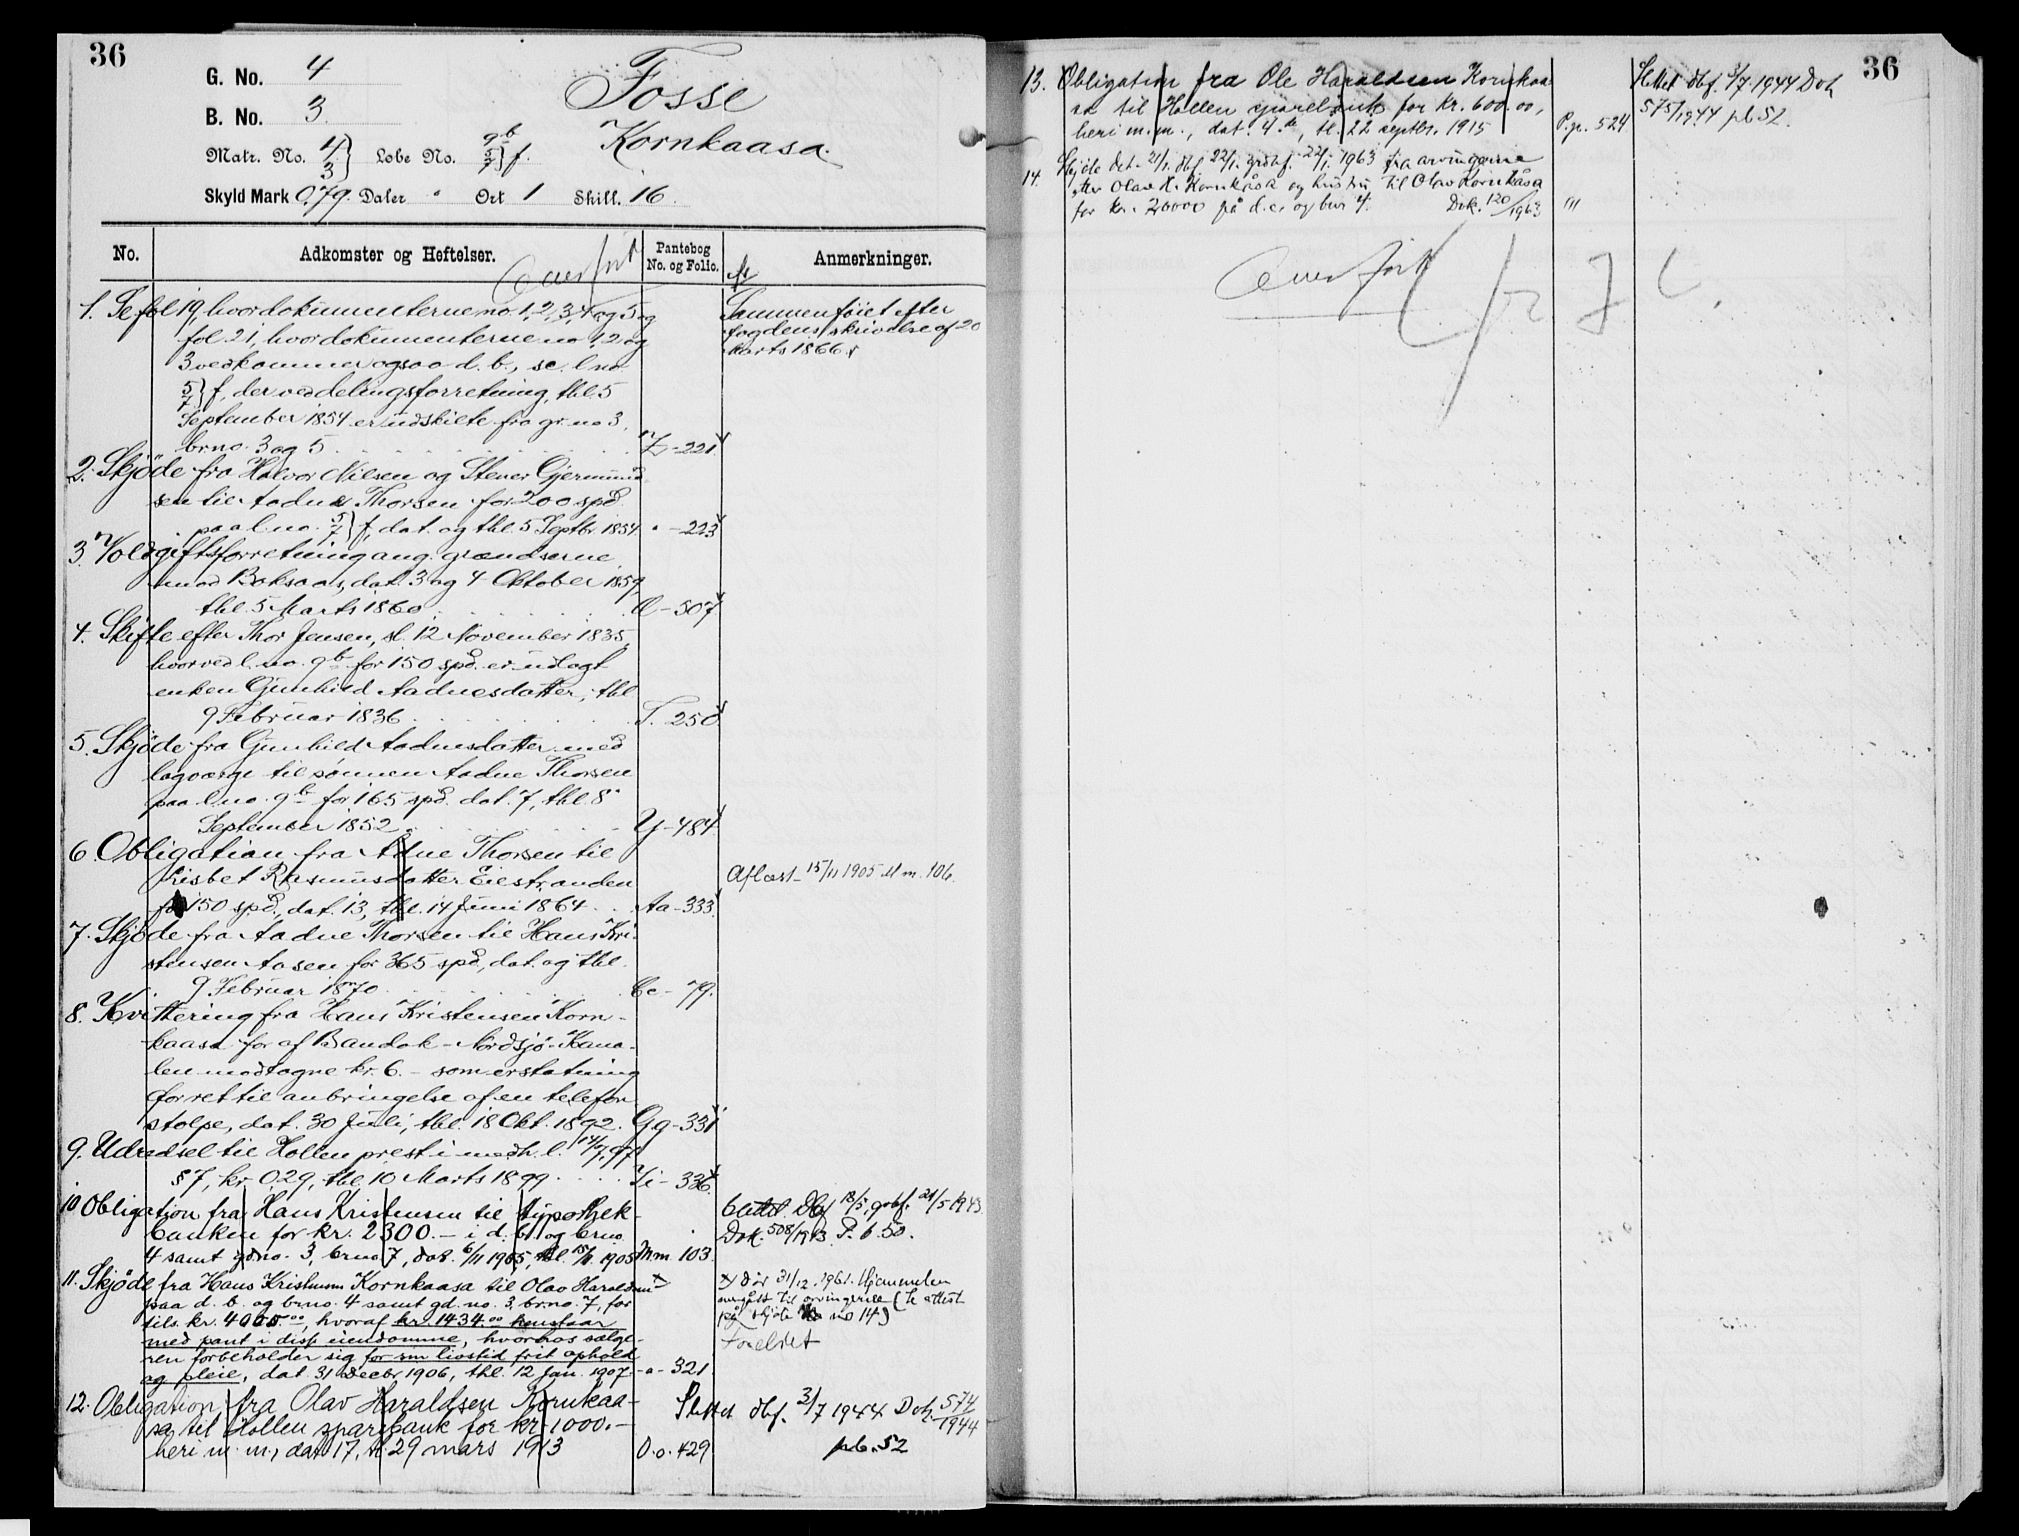 36
G. No. 4
Fosse
B. No. 3.
Kornkaasa.
Matr. No. 4/3} Løbe No. 9b 5/7} f.
Skyld Mark 0.79. Daler " Ort 1 Skill. 16.
No. Adkomster og Heftelser. Pantebog No. og Folio. Anmerkninger.
Overført
1. Se fol 19, hvor dokumenterne no 1, 2, 3, 4 og 5 og
fol. 21, hvor dokumenterne no 1, 2 og
3 vedkommer ogsaa d. b., se l. no
5/7} f, der ved delingsforretning, thl. 5
September 1854 er udskilte fra gr. no 3,
brno. 3 og 5 Z - 221
Sammenføiet efter
fogdens skrivelse af 20
Marts 1866.
2. Skjöde fra Halvor Nilsen og Stener Gjermund
sen til Aadne Thorsen for 200 spd.
paa l. no. 5/7} f, dat. og thl. 5 Septbr 1854. " - 223
3. Voldgiftsforretning ang. grændserne
mod Boksaas, dat. 3 og 4 Oktober 1859,
thl. 5 Marts 1860 A - 507
4. Skifte efter Thor Jensen, sl. 12 November 1835,
hvorved l. no. 9b for 150 spd. er udlagt
enken Gunhild Aadnesdatter, thl
9 Februar 1836 T. 250
5. Skjöde fra Gunhild Aadnesdatter med
lagværge til sønnen Aadne Thorsen
paa l. no. 9b for 165 spd. dat. 7, thl. 8
September 1852 Y - 484
6. Obligation fra Adne Thorsen til
Lisbet Rasmusdatter Eiestranden
for 150 spd., dat. 13, thl. 14 Juni 1864 Aa - 333
Aflæst 15/11 1905 M m. 106.
7. Skjöde fra Aadne Thorsen til Hans Kri-
stensen Aasen for 365 spd, dat. og thl.
9 Februar 1870 Cc - 79.
8. Kvittering fra Hans Kristensen Korn-
kaasa for af Bandak - Nordsjø - Kana-
len modtagne kr. 6. - som erstatning
for ret til anbringelse af en telefon
stolpe, dat. 30 Juli, thl. 18 Okt. 1892. Gg - 331
9. Udredsel til Hollen prest i medh. l. 14/7. 97
§ 7, kr. 0.29, thl. 10 Marts 1899 Ii - 336.
10 Obligation fra Hans Kristensen til Hypothek-
banken for kr. 2300. - i d. b. og brno
4 samt gdno. 3, brno 7, dat. 6/11 1905, thl. 15/11 1905 Mm 103.
Dbf 18/5. grbf. 21/5 1943.
Dok. 508/1943 P. b. 50.
11. Skjøde fra Hans Kristensen Kornkaasa til Olav Haraldsen x)
paa d. b. og brno. 4 samt gd. no. 3, brno. 7, for
tils. kr. 4065.00, hvoraf kr. 1434.00 henstaar
med pant i disp eiendomme, hvorhos sælge-
ren forbeholder sig for sin livstid frit ophold
og pleie, dat. 31 Decbr 1906, thl. 12 Jan. 1907. - " - 321
x) død 31/12. 1961. Hjemmelen
overgått til arvingerne (Se attest
på skjøte no 14)
Foreldet
12. Obligation fra Olav Haraldsen Kornkaa-
sa til Hollen sparebank for kr. 1000. -
heri m. m., dat. 17, tl. 29 mars 1913 O. o. 429
Slettet dbf. 3/7 1944 Dok 574/1944
pb. 52
36
13. Obligation fra Ole Haraldsen Kornkaa
sa til Hollen sparebank for kr. 600.00,
heri m. m., dat. 4. de, tl. 22 septbr. 1915 P.p. 524
Slettet dbf. 3/7 1944 Dok
575/1944 pb 52.
14. Skjøte dat. 21/1. dbf. 22/1. grbf. 22/1. 1963 fra arvingerne
etter Olav H. Kornkåsa og hustru til Olav Kornkåsa
for kr. 20000 på d.e. og bnr 4. Dok. 120/1963 "
Overført